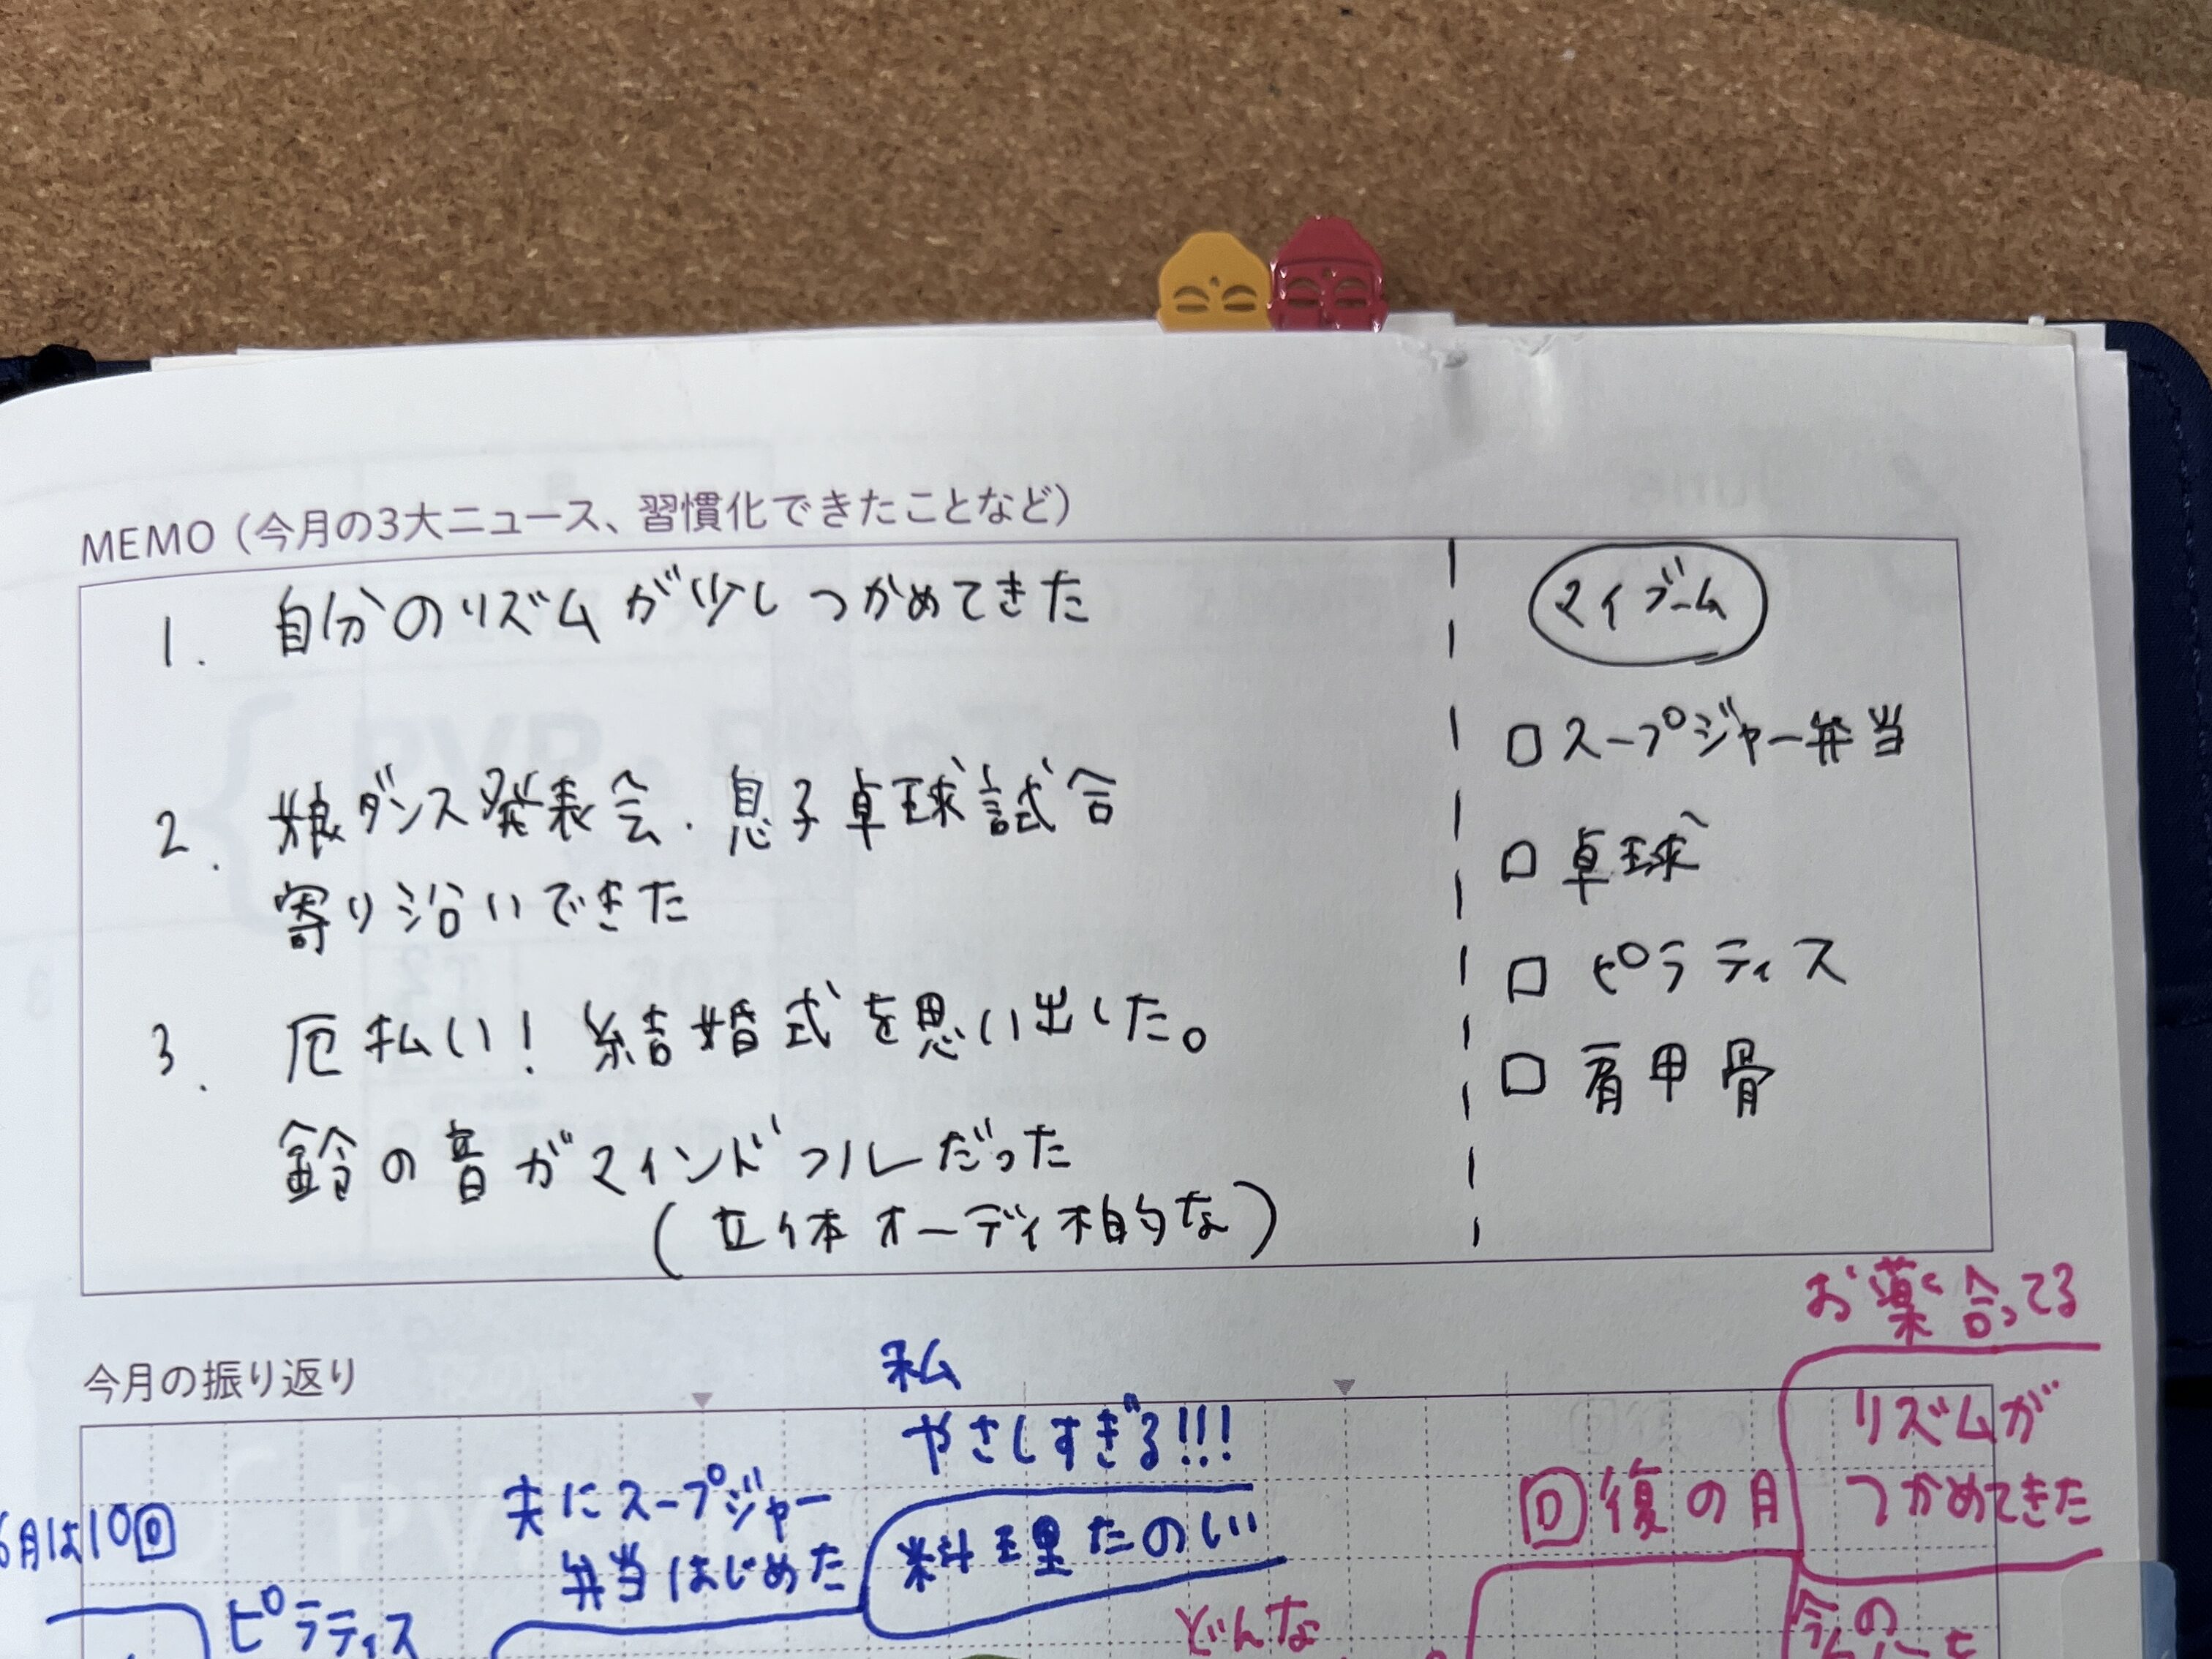 MEMO（今月の3大ニュース、習慣化できたことなど）
1. 自分のリズムが少しつかめてきた
2. 娘ダンス発表会・息子卓球試合
寄り沿いできた
3. 厄払い！結婚式を思い出した。
鈴の音がマインドフルだった
（立体オーディオ的な）
マイブーム
□スープジャー弁当
□卓球
□ピラティス
□肩甲骨
今月の振り返り
私
やさしすぎる!!!
夫にスープジャー
弁当はじめた
料理たのしい
6月は10回
ピラティス
お薬合ってる
リズムが
つかめてきた
回復の月
どんな